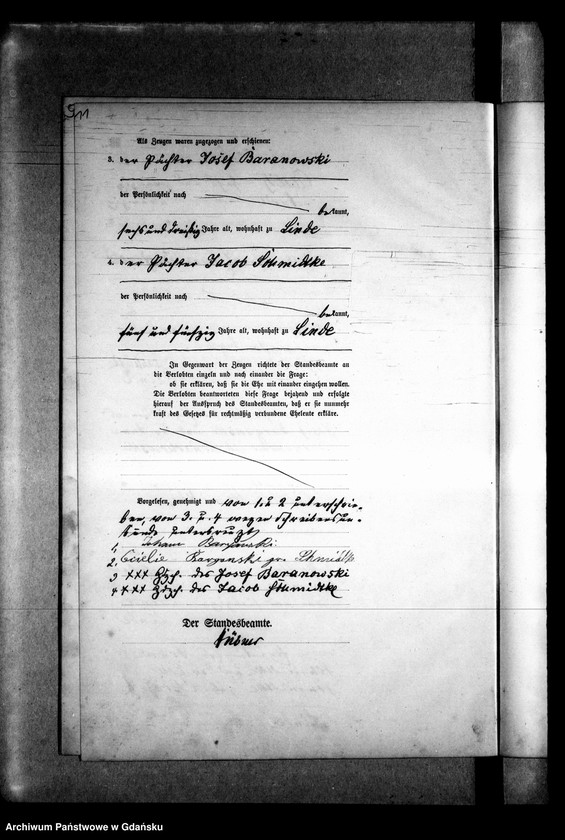 Als Zeugen waren zugezogen und erschienen:
3. der Pächter Josef Baranowski
der Persönlichkeit nach
bekannt,
sechs und dreißig Jahre alt, wohnhaft zu Linde
4. der Pächter Jacob Schmidtke
der Persönlichkeit nach
bekannt,
fünf und fünfzig Jahre alt, wohnhaft zu Linde
In Gegenwart der Zeugen richtete der Standesbeamte an
die Verlobten einzeln und nach einander die Frage:
ob sie erklären, daß sie die Ehe mit einander eingehen wollen.
Die Verlobten beantworteten diese Frage bejahend und erfolgte
hierauf der Ausspruch des Standesbeamten, daß er sie nunmehr
kraft des Gesetzes für rechtmäßig verbundene Eheleute erkläre.
Vorgelesen, genehmigt und von 1. u 2 unterschrie-
ben, von 3. u. 4 wegen Schreibensun-
kunde unterkreuzt
1, Johann
2, Cecilie geb. Schmidtke
3 xxx Hdzch. des Josef Baranowski
4 xxx Hdzch. des Jacob Schmidtke
Der Standesbeamte.
Archiwum Państwowe w Gdańsku